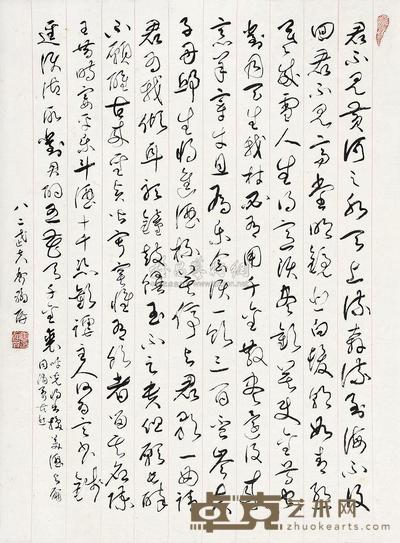 君不見黃河之水天上來奔流到海不復
回君不見高堂明鏡悲白髮朝如青絲
暮成雪人生得意須盡歡莫使金樽空
對月天生我材必有用千金散盡還復來
烹羊宰牛且為樂會須一飲三百杯岑夫
子丹邱生將進酒杯莫停與君歌一曲請
君為我傾耳聽鐘鼓饌玉不足貴但願長醉
不願醒古來聖賢皆寂寞惟有飲者留其名陳
王昔時宴平樂斗酒十千恣歡謔主人何為言少錢
徑須沽取對君酌五花馬千金裘呼兒將出換美酒與爾
同銷萬古愁
八二
卓克艺术网
zhuokearts.com